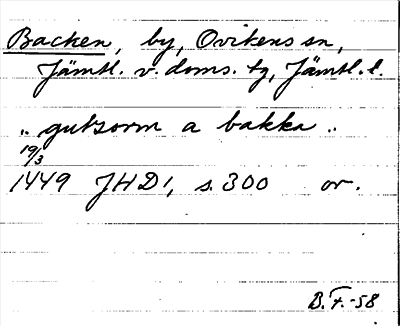 Backen, by, Ovikens sn,
Jämtl. v. doms. tg, Jämtl. l.
„ gutzorm a bakka „
19/3
1449 JHD1, s. 300 or.
B. F. -58